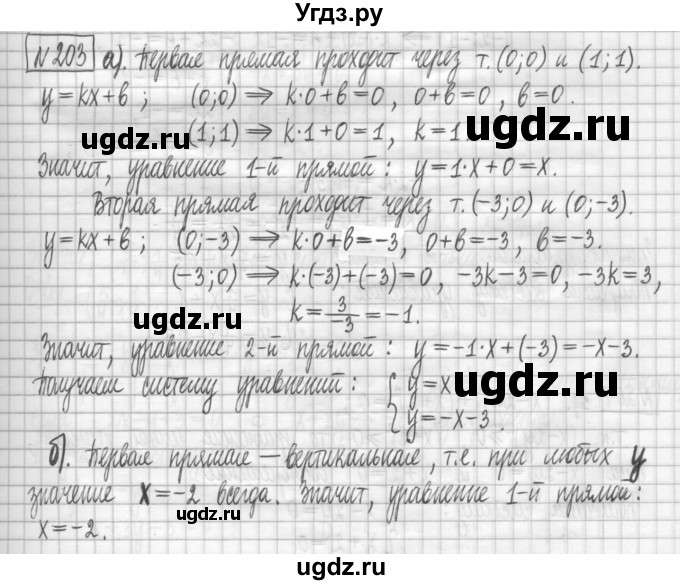 Угдз.ру
№203 а). Первая прямая проходит через т. (0;0) и (1;1).
y=kx+b; (0;0) ⟹ k·0+b=0, 0+b=0, b=0.
ugdz.ru
(1;1) ⟹ k·1+0=1, k=1
ugdz.ru
Значит, уравнение 1-й прямой: y=1·x+0=x.
Вторая прямая проходит через т. (-3;0) и (0;-3).
y=kx+b; (0;-3) ⟹ k·0+b=-3, 0+b=-3, b=-3.
(-3;0) ⟹ k·(-3)+(-3)=0, -3k-3=0, -3k=3,
ugdz.ru
k=3/-3=-1.
Значит, уравнение 2-й прямой: y=-1·x+(-3)=-x-3.
Получаем систему уравнений: { y=x
ugdz.ru
y=-x-3.
ugdz.ru
б). Первая прямая — вертикальная, т.е. при любых y
значение x=-2 всегда. Значит, уравнение 1-й прямой:
x=-2.
ugdz.ru
ugdz.ru